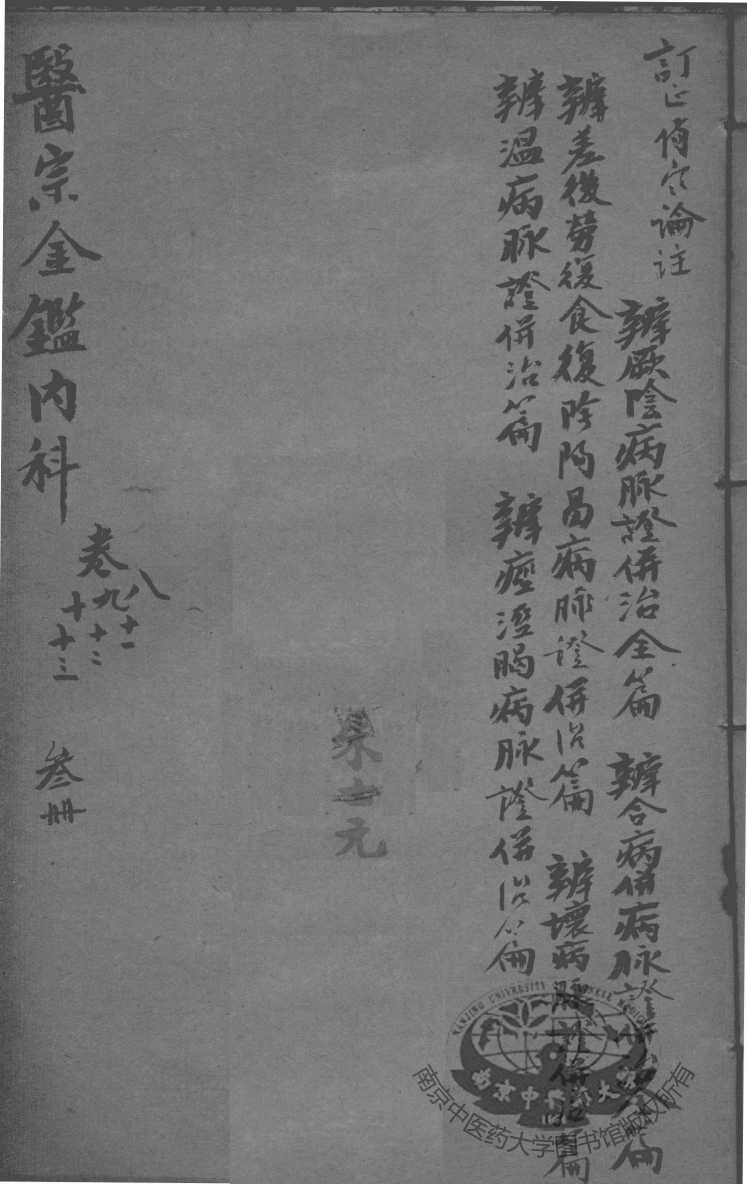 訂正傷寒論註
辨厥陰病脉證併治全篇 辨合病併病脉證併治全篇
辨差後勞復食復陰陽易病脉證併治篇 辨壞病脉證併治篇
辨溫病脉證併治篇 辨痙溼暍病脉證併治篇
元
醫宗金鑑內科
卷八
九 十一
十 十二
十三
叁冊
NANJING UNIVERSITY CHINESE MEDICINE
南京中医药大学
南京中医药大学图书馆版权所有